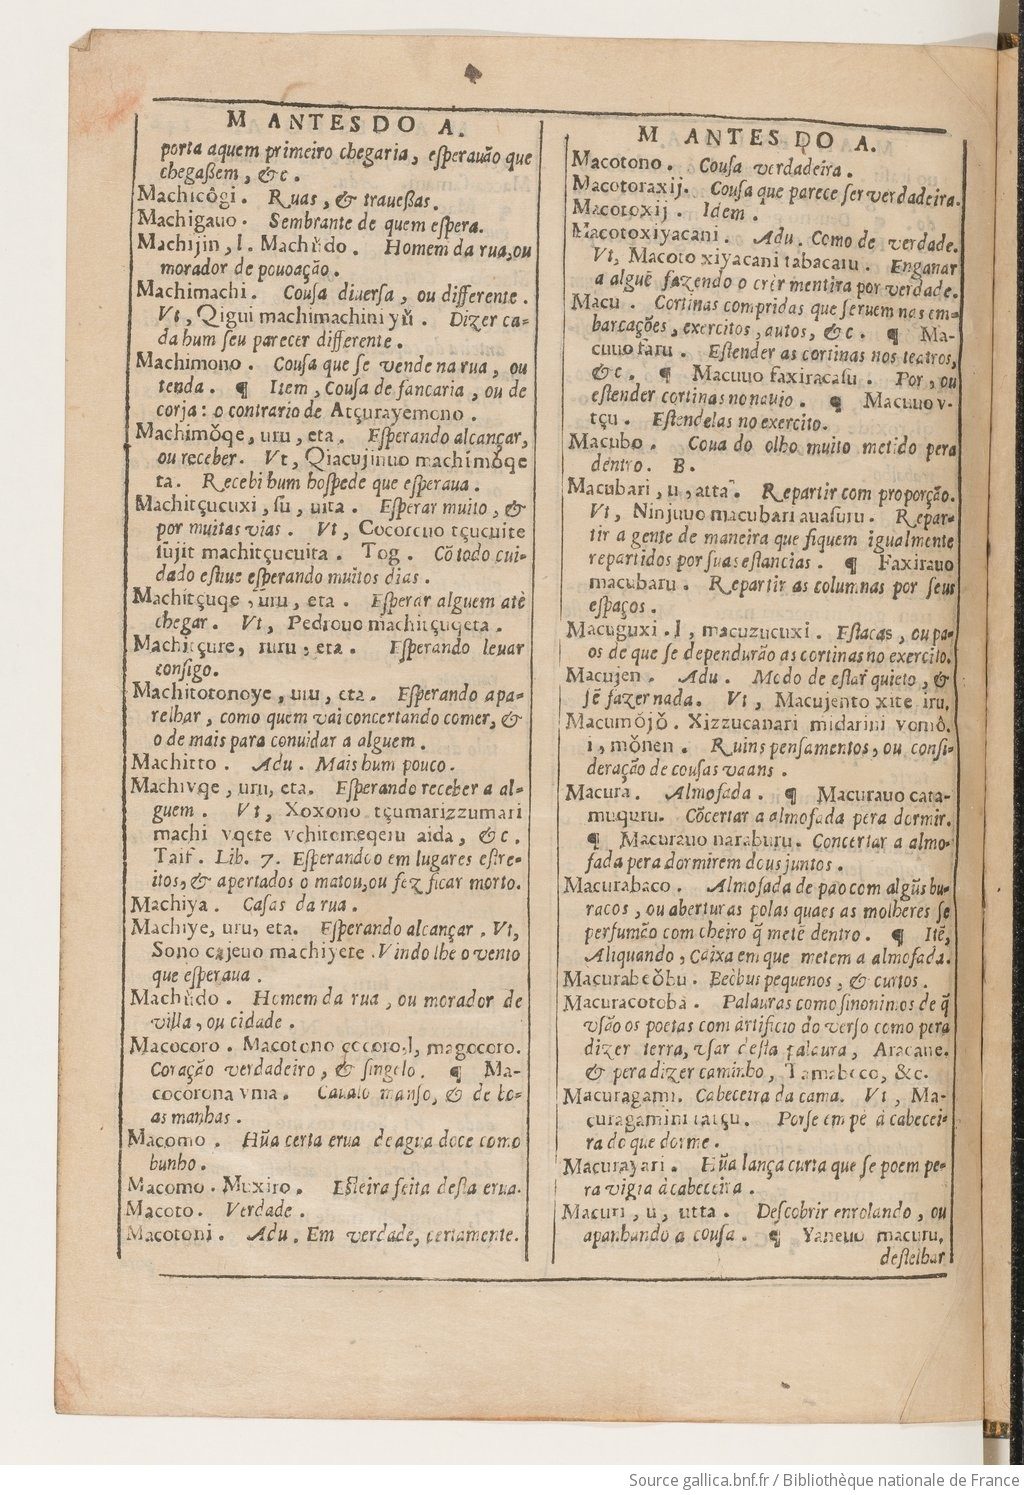 M ANTES DO A.
porta aquem primeiro chegaria, eſperauão que
chegaßem, &c.
Machicôgi. Ruas, & traueßas.
Machigauo. Sembrante de quem eſpera.
Machijin, l. Machŭdo. Homem da rua, ou
morador de pouoação.
Machimachi. Couſa diuerſa, ou differente.
Vt, Qigui machimachini yŭ. Dizer ca-
da hum ſeu parecer differente.
Machimono. Couſa que ſe vende na rua, ou
tenda. ¶ Item, Couſa de fancaria, ou de
corja: o contrario de Atçurayemono.
Machimŏqe, uru, eta. Eſperando alcançar,
ou receber. Vt, Qiacujinuo machimŏqe
ta. Recebi hum hoſpede que eſperaua.
Machitçucuxi, ſu, uita. Eſperar muito, &
por muitas vias. Vt, Cocorcuo tçucuite
ſujit machitçucuita. Tog. Cõ todo cui-
dado eſtiue eſperando muitos dias.
Machitçuqe, ŭru, eta. Eſperar alguem atè
chegar. Vt, Pedrouo machitçuqeta.
Machitçure, ruru, eta. Eſperando leuar
conſigo.
Machitotonoye, uru, eta. Eſperando apa-
relhar, como quem vai concertando comer, &
o de mais para conuidar a alguem.
Machitto. Adu. Mais hum pouco.
Machivqe, uru, eta. Eſperando receber a al-
guem. Vt, Xoxono tçumarizzumari
machi vqete vchitomeqeru aida, &c.
Taif. Lib. 7. Eſperandoo em lugares eſtre-
itos, & apertados o matou, ou fez ficar morto.
Machiya. Caſas da rua.
Machiye, uru, eta. Eſperando alcançar. Vt,
Sono cajeuo machiyete. Vindolhe o vento
que eſperaua.
Machŭdo. Homem da rua, ou morador de
villa, ou cidade.
Macocoro. Macotono cocoro, l, magocoro.
Coração verdadeiro, & ſingelo. ¶ Ma-
cocorona vma. Caualo manſo, & de bo-
as manhas.
Macomo. Hũa certa erua de agua doce como
bunho.
Macomo. Muxiro. Eſteira feita deſta erua.
Macoto. Verdade.
Macotoni. Adu. Em verdade, certamente.
M ANTES DO A.
Macotono. Couſa verdadeira.
Macotoraxij. Couſa que parece ſer verdadeira.
Macotoxij. Idem.
Macotoxiyacani. Adu. Como de verdade.
Vt, Macoto xiyacani tabacaru. Enganar
a alguẽ fazendo o crer mentira por verdade.
Macu. Cortinas compridas que ſeruem nas em-
barcações, exercitos, autos, &c. ¶ Ma-
cuuo faru. Eſtender as cortinas nos teatros,
&c. ¶ Macuuo faxiracaſu. Por, ou
eſtender cortinas no nauio. ¶ Macuuo v-
tçu. Eſtendelas no exercito.
Macubo. Coua do olho muito metido pera
dentro. B.
Macubari, u, atta. Repartir com proporção.
Vt, Ninjuuo macubari auaſuru. Repar-
tir a gente de maneira que fiquem igualmente
repartidos por ſuas eſtancias. ¶ Faxirauo
macubaru. Repartir as columnas por ſeus
eſpaços.
Macuguxi. l, macuzucuxi. Eſtacas, ou pa-
os de que ſe dependurão as cortinas no exercito.
Macujen. Adu. Modo de eſtar quieto, &
ſẽ fazer nada. Vt, Macujento xite iru.
Macumŏjŏ. Xizzucanari midarini vomô.
i, mŏnen. Ruins penſamentos, ou conſi-
deração de couſas vaans.
Macura. Almofada. ¶ Macurauo cata-
muquru. Cõcertar a almofada pera dormir.
¶ Macurauo naraburu. Concertar a almo-
fada pera dormirem dous juntos.
Macurabaco. Almofada de pao com algũs bu-
racos, ou aberturas polas quaes as molheres ſe
perfumão com cheiro q̃ metẽ dentro. ¶ Itẽ,
Aliquando, Caixa em que metem a almofada.
Macurabeŏbu. Beŏbus pequenos, & curtos.
Macuracotoba. Palauras como ſinonimos de q̃
vſão os poetas com artificio do verſo como pera
dizer terra, vſar deſta palaura, Aracane.
& pera dizer caminho, Tamaboco, &c.
Macuragami. Cabeceira da cama. Vt, Ma-
curagamini tatçu. Porſe em pè à cabecei-
ra do que dorme.
Macurayari. Hũa lança curta que ſe poem pe-
ra vigia à cabeceira.
Macuri, u, utta. Deſcobrir enrolando, ou
apanhando a couſa. ¶ Yaneuo macuru,
deſtelhar
Source gallica.bnf.fr / Bibliothèque nationale de France